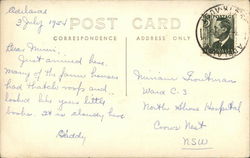 Adelaide
3 July 1952
POST CARD
CORRESPONDENCE
ADDRESS ONLY
Dear Mimi,
Just arrived here.
Many of the farm houses
had thatch roofs and
looked like your little
books. It is already
Daddy
Miriam
Ward C.3
North Shore Hospital
Crows Nest
NSW